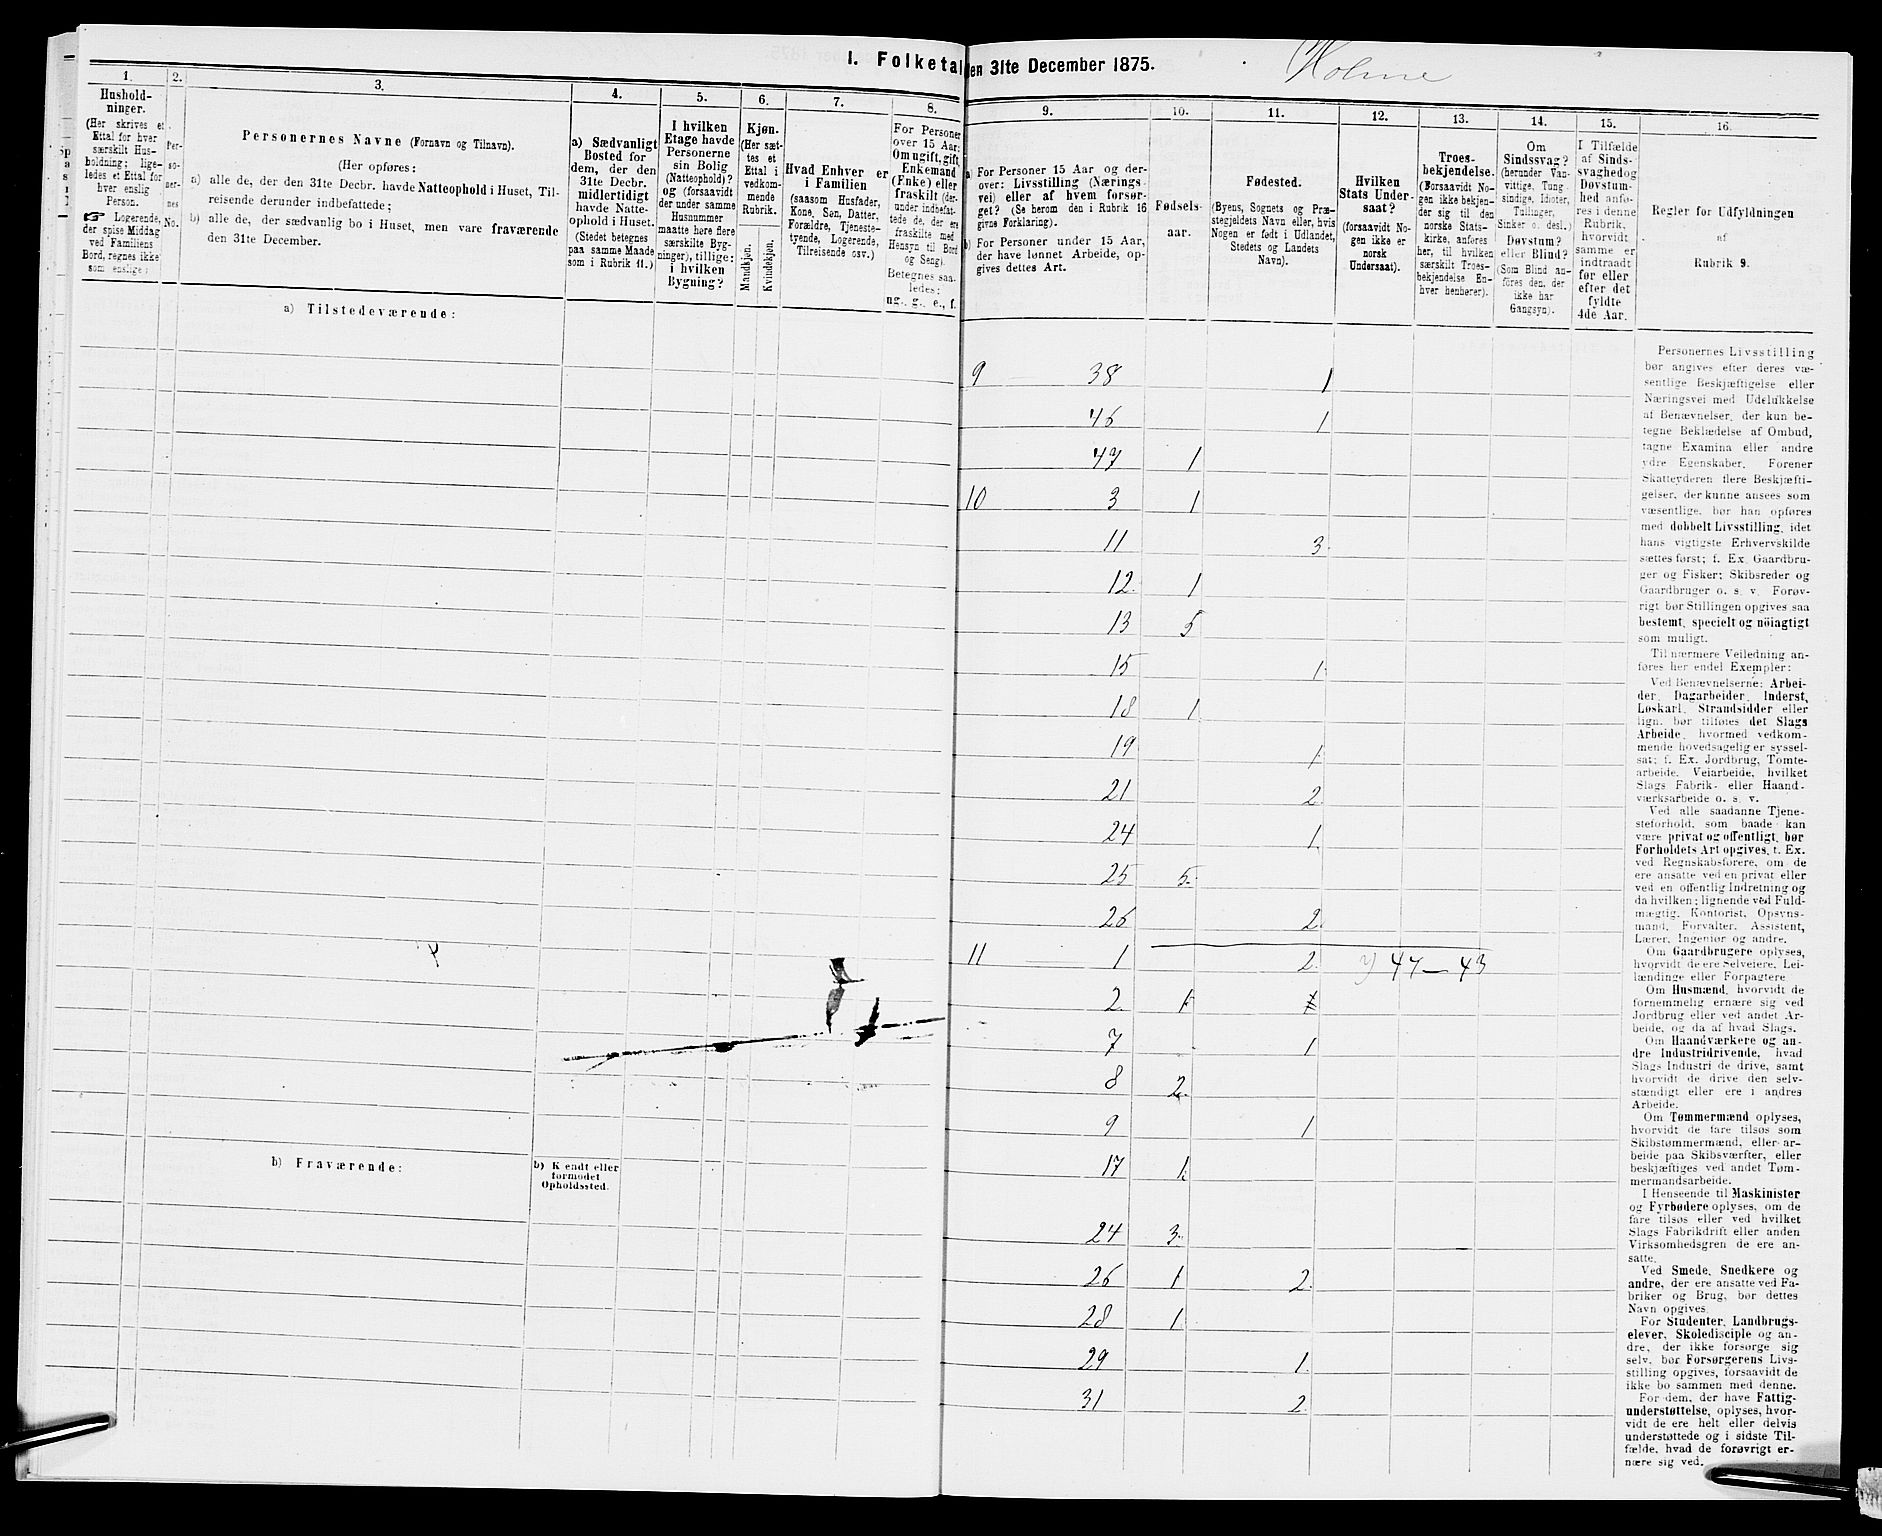 I. Folketal den 31te December 1875.
Holme
1.
Hushold-
ninger.
(Her skrives et
Ettal for hver
særskilt Hus-
holdning; lige-
ledes et Ettal for
hver enslig
Person.
☞ Logerende,
der spise Middag
ved Familiens
Bord, regnes ikke
som enslige.)
2.
Per-
so-
ner-
nes
No.
3.
Personernes Navne (Fornavn og Tilnavn).
(Her opføres:
a) alle de, der den 31te Decbr. havde Natteophold i Huset, Til-
reisende derunder indbefattede;
b) alle de, der sædvanlig bo i Huset, men vare fraværende
den 31te December.
4.
a) Sædvanligt
Bosted for
dem, der den
31te Decbr.
midlertidigt
havde Natte-
ophold i Huset.
(Stedet betegnes
paa samme Maade
som i Rubrik 11.)
5.
I hvilken
Etage havde
Personerne
sin Bolig
(Natteophold)?
og (forsaavidt
der under samme
Husnummer
maatte høre flere
særskilte Byg-
ninger), tillige:
i hvilken
Bygning?
6.
Kjøn.
(Her sæt-
tes et
Ettal i
vedkom-
mende
Rubrik.
Mandkjøn.
Kvindekjøn.
7.
Hvad Enhver er
i Familien
(saasom Husfader,
Kone, Søn, Datter,
Forældre, Tjeneste-
tyende, Logerende,
Tilreisende osv.)
8.
For Personer
over 15 Aar:
Om ugift, gift,
Enkemand
(Enke) eller
fraskilt (der-
under indbefat-
tede de, der ere
fraskilte med
Hensyn til Bord
og Seng).
Betegnes saa-
ledes:
ug., g., e., f.
9.
a) For Personer 15 Aar og der-
over: Livsstilling (Nærings-
vei) eller af hvem forsør-
get? (Se herom den i Rubrik 16
givne Forklaring).
b) For Personer under 15 Aar,
der have lønnet Arbeide, op-
gives dettes Art.
10.
Fødsels-
aar.
11.
Fødested.
(Byens, Sognets og Præ-
stegjeldets Navn eller, hvis
Nogen er født i Udlandet,
Stedets og Landets
Navn).
12.
Hvilken
Stats Under-
saat?
(forsaavidt No-
gen ikke er
norsk
Undersaat).
13.
Troes-
bekjendelse.
(Forsaavidt No-
gen ikke bekjen-
der sig til den
norske Stats-
kirke, anføres
her, til hvilken
særskilt Troes-
bekjendelse En-
hver henhører).
14.
Om
Sindssvag?
(herunder Van-
vittige, Tung-
sindige, Idioter,
Tullinger,
Sinker o. desl.)
Døvstum?
eller Blind?
(Som Blind an-
føres den, der
ikke har
Gangsyn).
15.
I Tilfælde
af Sinds-
svaghed og
Døvstum-
hed anfø-
res i denne
Rubrik,
hvorvidt
samme er
indtraadt
før eller
efter det
fyldte
4de Aar.
16.
Regler for Udfyldningen
af
Rubrik 9.
a) Tilstedeværende:
9 38 1
46 1
47 1
10 3 1
11 3
12. 1
13 5
15 1
18 1
19 1
21 2
24 1
25 5
26 2
11 1 2 47 — 43
2. 1
7 1
8 2
9 1
17 1
b) Fraværende:
b) Kjendt eller
formodet
Opholdssted.
24 3
26 1 2
28 1
29 1
31 2
Personernes Livsstilling
bør angives efter deres væ-
sentlige Beskjæftigelse eller
Næringsvei med Udelukkelse
af Benævnelser, der kun be-
tegne Beklædelse af Ombud,
tagne Examina eller andre
ydre Egenskaber. Forener
Skatteyderen flere Beskjæfti-
gelser, der kunne ansees som
væsentlige, bør han opføres
med dobbelt Livsstilling, idet
hans vigtigste Erhvervskilde
sættes først; f. Ex. Gaardbru-
ger og Fisker; Skibsreder og
Gaardbruger o. s. v. Forøv-
rigt bør Stillingen opgives saa
bestemt, specielt og nöiagtigt
som muligt.
Til nærmere Veiledning an-
føres her endel Exempler:
Ved Benævnelserne: Arbei-
der, Dagarbeider, Inderst,
Løskarl, Strandsidder eller
lign. bør tilføies det Slags
Arbeide, hvormed vedkom-
mende hovedsagelig er syssel-
sat; f. Ex. Jordbrug, Tomte-
arbeide, Veiarbeide, hvilket
Slags Fabrik- eller Haand-
værksarbeide o. s. v.
Ved alle saadanne Tjene-
steforhold, som baade kan
være privat og offentligt, bør
Forholdets Art opgives, f. Ex.
ved Regnskabsførere, om de
ere ansatte ved en privat eller
ved en offentlig Indretning og
da hvilken; lignende ved Fuld-
mægtig, Kontorist, Opsyns-
mand, Forvalter, Assistent,
Lærer, Ingeniør og andre.
Om Gaardbrugere oplyses,
hvorvidt de ere Selveiere, Lei-
lændinge eller Forpagtere.
Om Husmænd, hvorvidt de
fornemmelig ernære sig ved
Jordbrug eller ved andet Ar-
beide, og da af hvad Slags.
Om Haandværkere og an-
dre Industridrivende, hvad
Slags Industri de drive, samt
hvorvidt de drive den selv-
stændigt eller ere i andres
Arbeide.
Om Tømmermænd oplyses,
hvorvidt de fare tilsøs som
Skibstømmermænd, eller ar-
beide paa Skibsværfter, eller
beskjæftiges ved andet Tøm-
mermandsarbeide.
I Henseende til Maskinister
og Fyrbødere oplyses, om de
fare tilsøs eller ved hvilket
Slags Fabrikdrift eller anden
Virksomhedsgren de ere an-
satte.
Ved Smede, Snedkere og
andre, der ere ansatte ved Fa-
briker og Brug, bør dettes
Navn opgives.
For Studenter, Landbrugs-
elever, Skoledisciple og an-
dre, der ikke forsørge sig
selv, bør Forsørgerens Livs-
stilling opgives, forsaavidt de
ikke bo sammen med denne.
For dem, der have Fattig-
understøttelse, oplyses, hvor-
vidt de ere helt eller delvis
understøttede og i sidste Til-
fælde, hvad de forøvrigt er-
nære sig ved.